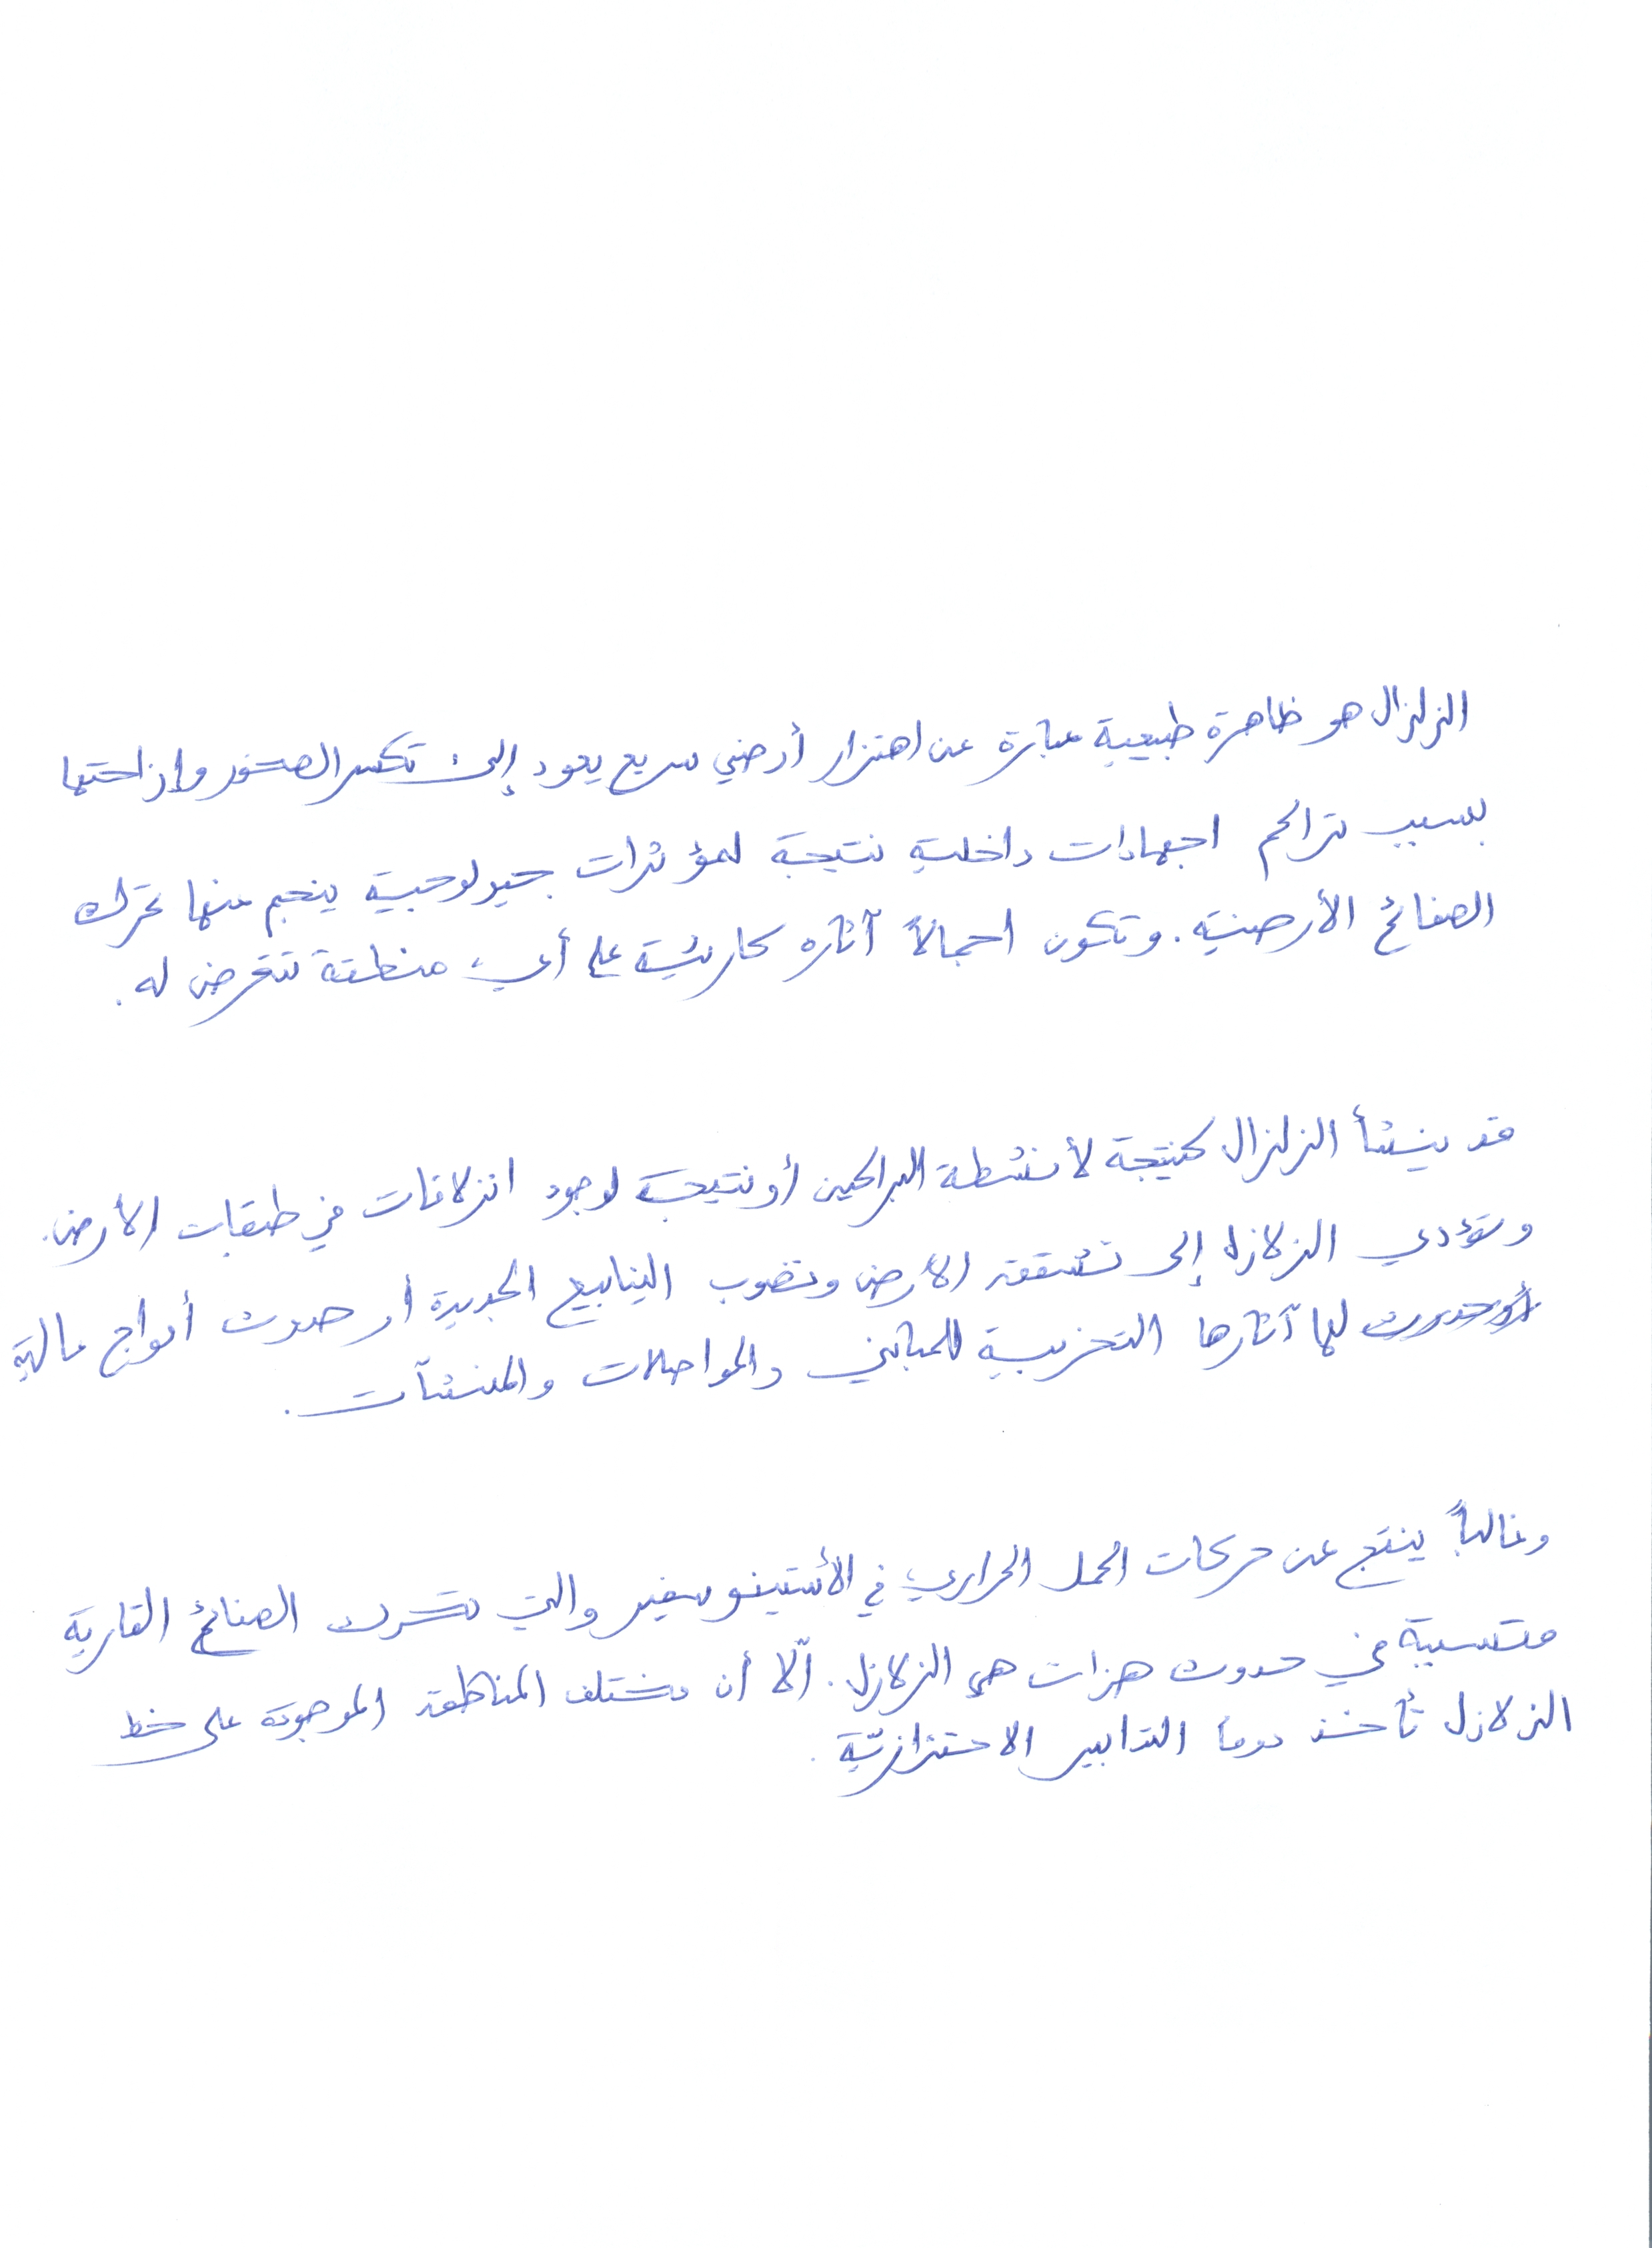 الزلزال هو ظاهرة طبيعية عبارة عن اهتزاز أرضي سريع يعود إلى تكسر الصخور وإزاحتها
بسبب تراكم اجهادات داخلية نتيجة لمؤثرات جيولوجية ينجم عنها تحرك
الصفائح الأرضية. وتكون اجمالاً آثاره كارثية على أي منطقة تتعرض له.
قد ينشأ الزلزال كنتيجة لأنشطة البراكين أو نتيجة لوجود انزلاقات في طبقات الأرض.
وتؤدي الزلازل إلى تشقق الأرض ونضوب الينابيع الجديدة أو حدوث أمواج عالية
لها آثارها التخريبية للمباني والمواصلات والمنشآت.
وغالباً ينتج عن حركات الحمل الحراري في الأستينوسفير والتي تحرك الصفائح القارية
متسببة في حدوث هزات هي الزلازل. الّا أن مختلف المناطق الموجودة على خط
الزلازل تأخذ دوماً التدابير الاحترازيّة.